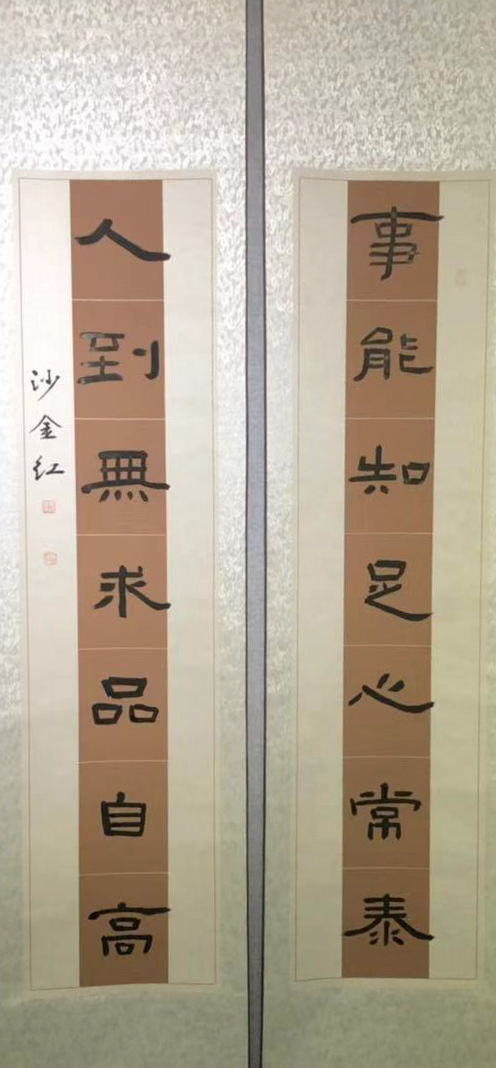 事能知足心常泰
人到無求品自高
沙金红